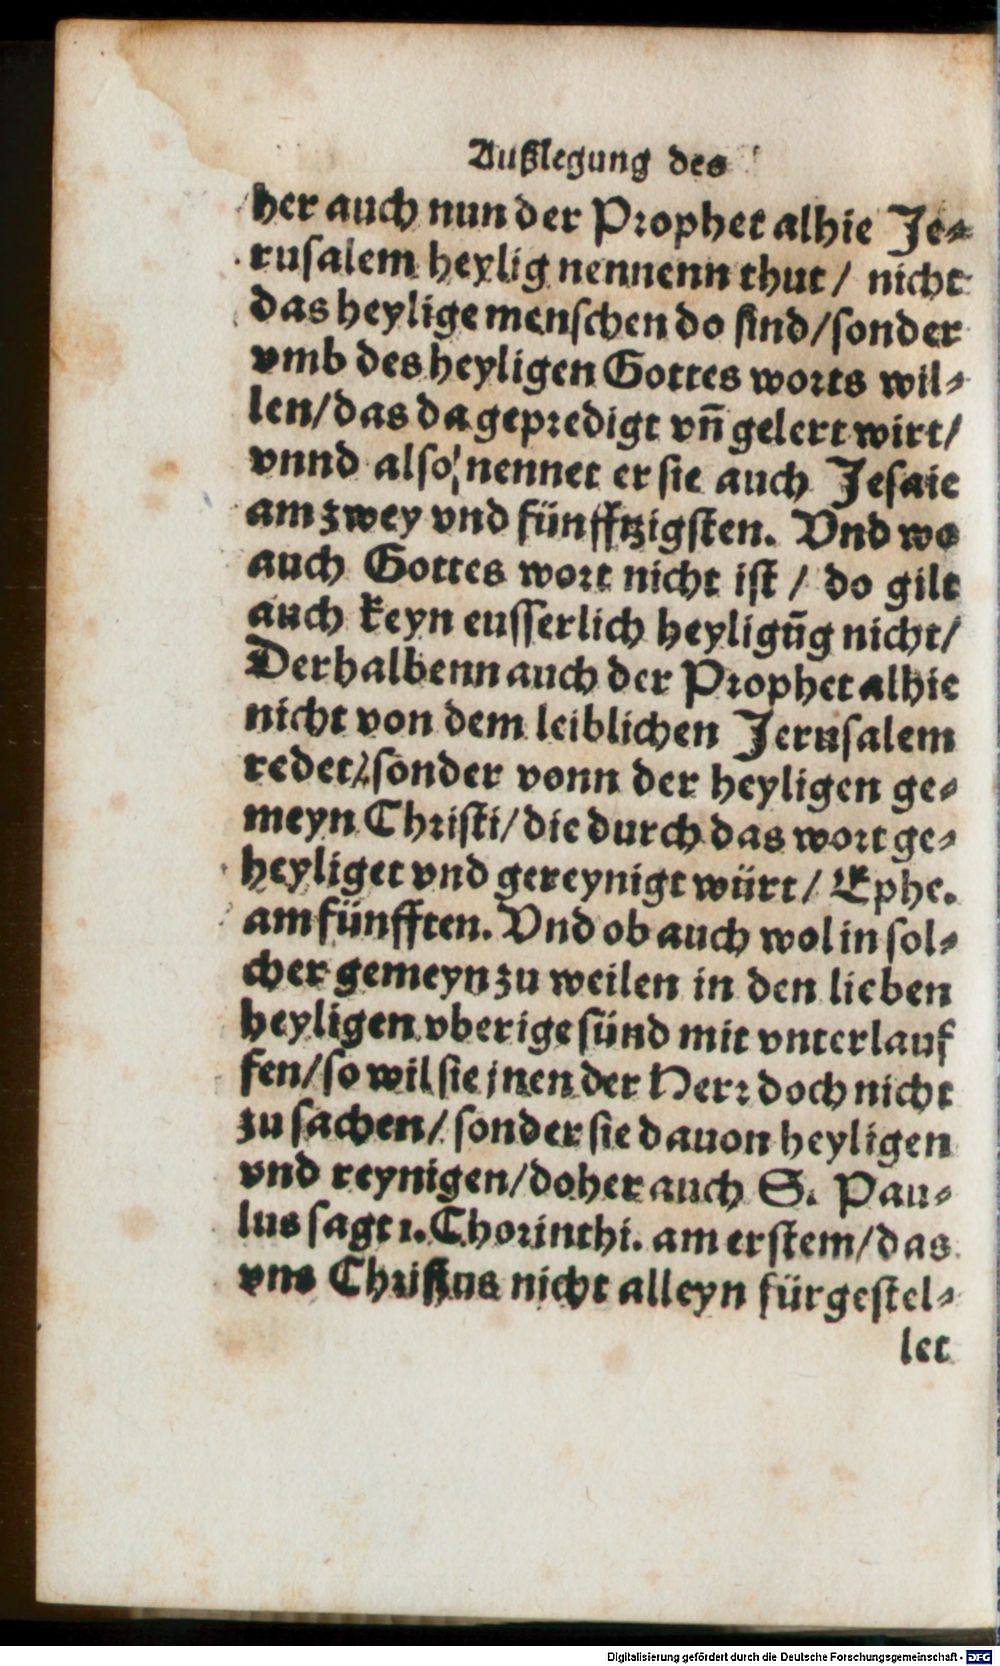 Außlegung des
her auch nun der Prophet alhie Je⸗
rusalem heylig nennenn thut / nicht
das heylige menschen do sind / sonder
vmb des heyligen Gottes worts wil⸗
len / das da gepredigt vñ gelert wirt /
vnnd also nennet er sie auch Jesaie
am zwey vnd fünfftzigsten. Vnd wo
auch Gottes wort nicht ist / do gilt
auch keyn eusserlich heyligūg nicht /
Derhalbenn auch der Prophet alhie
nicht von dem leiblichen Jerusalem
redet / sonder vonn der heyligen ge⸗
meyn Christi / die durch das wort ge⸗
heyliget vnd gereynigt würt / Ephe.
am fünfften. Vnd ob auch wol in sol⸗
cher gemeyn zu weilen in den lieben
heyligen vberige sünd mit vnterlauf
fen / so wil sie jnen der Herr doch nicht
zu sachen / sonder sie dauon heyligen
vnd reynigen / doher auch S. Pau⸗
lus sagt 1. Chorinthi. am erstem / das
vns Christus nicht alleyn fürgestel⸗
let
Digitalisierung gefördert durch die Deutsche Forschungsgemeinschaft - DFG